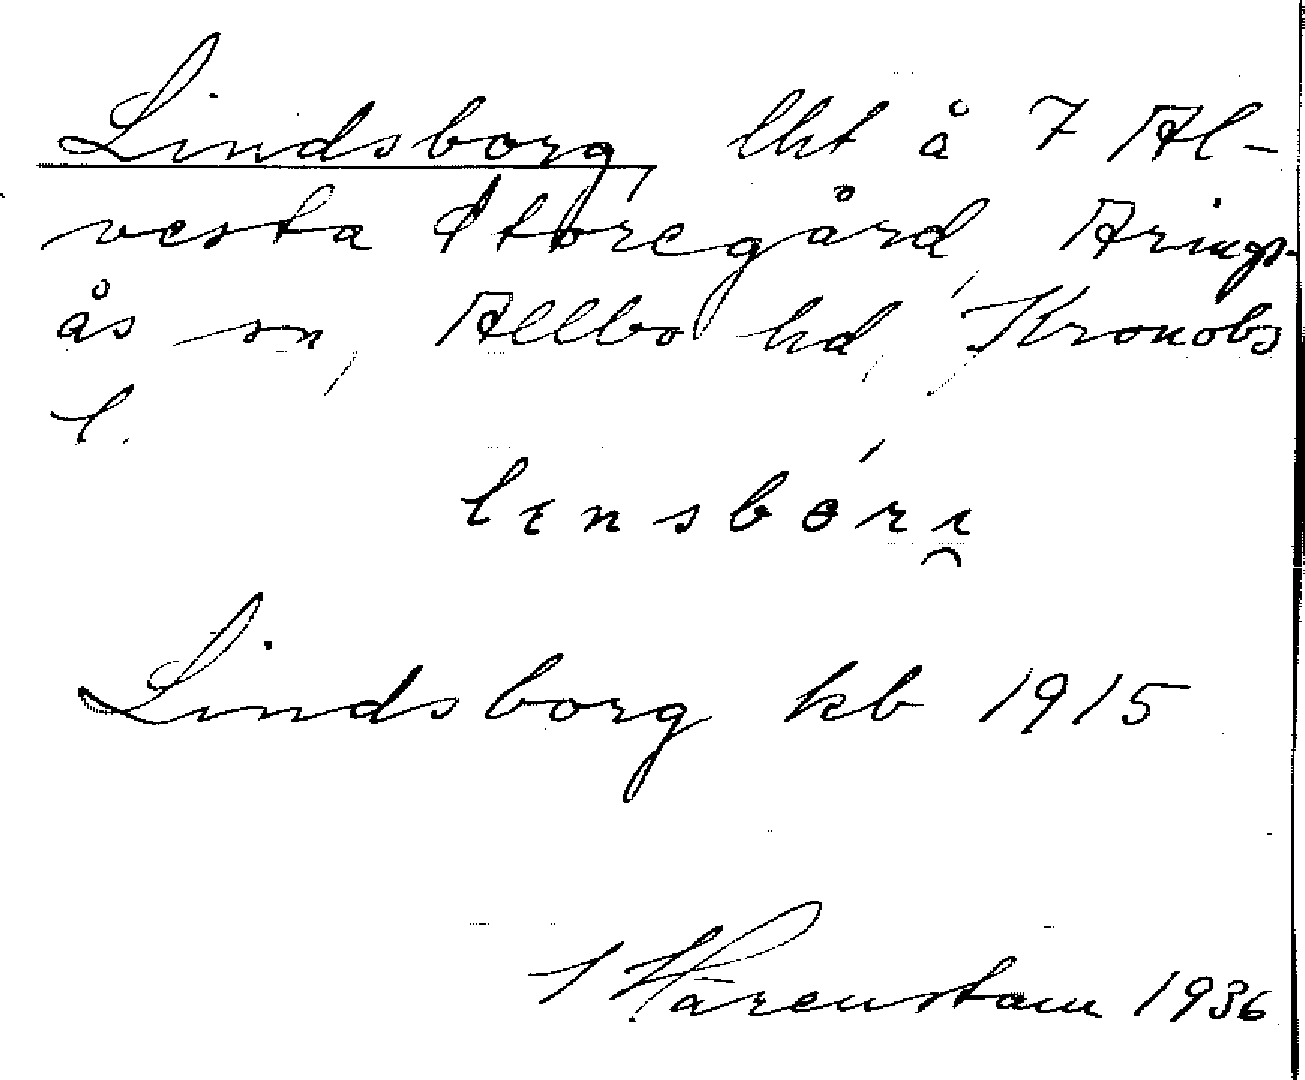 Lindsborg, lht å 7 Al-
vesta Storegård, Arings-
ås sn, Allbo hd, Kronobs
l.
Lindsborg kb 1915
Härenstam 1936